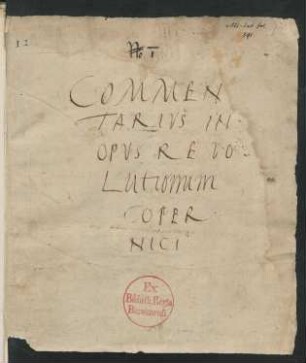 No I
COMMEN
TARIUS IN
OPUS REVO-
Lutionum
COPER
NICI
Ex
Biblioth. Regia
Berolinensi.